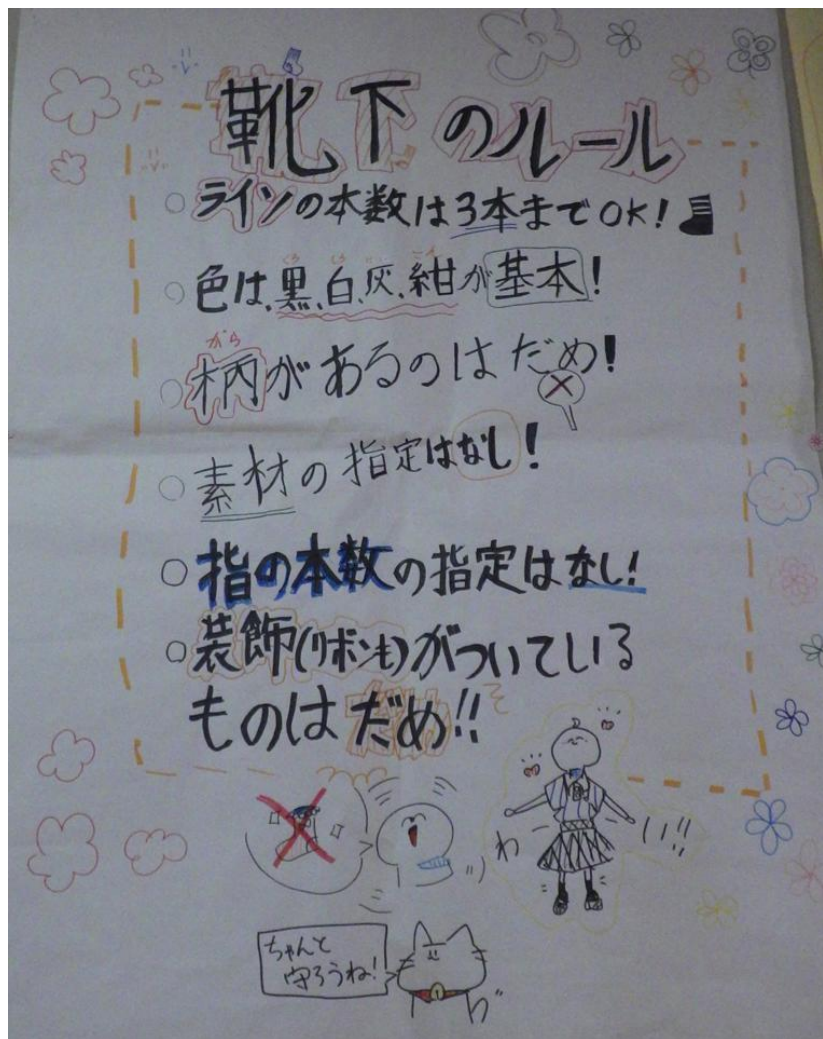 靴下のルール
○ラインの本数は3本までOK!
○色は、黒、白、灰、紺が基本!
くろ しろ はい こん
がら
○柄があるのはだめ!
○素材の指定はなし!
○指の本数の指定はなし!
○装飾(リボンも)がついている
ものはだめ!!
わーい!!
ちゃんと
守ろうね!